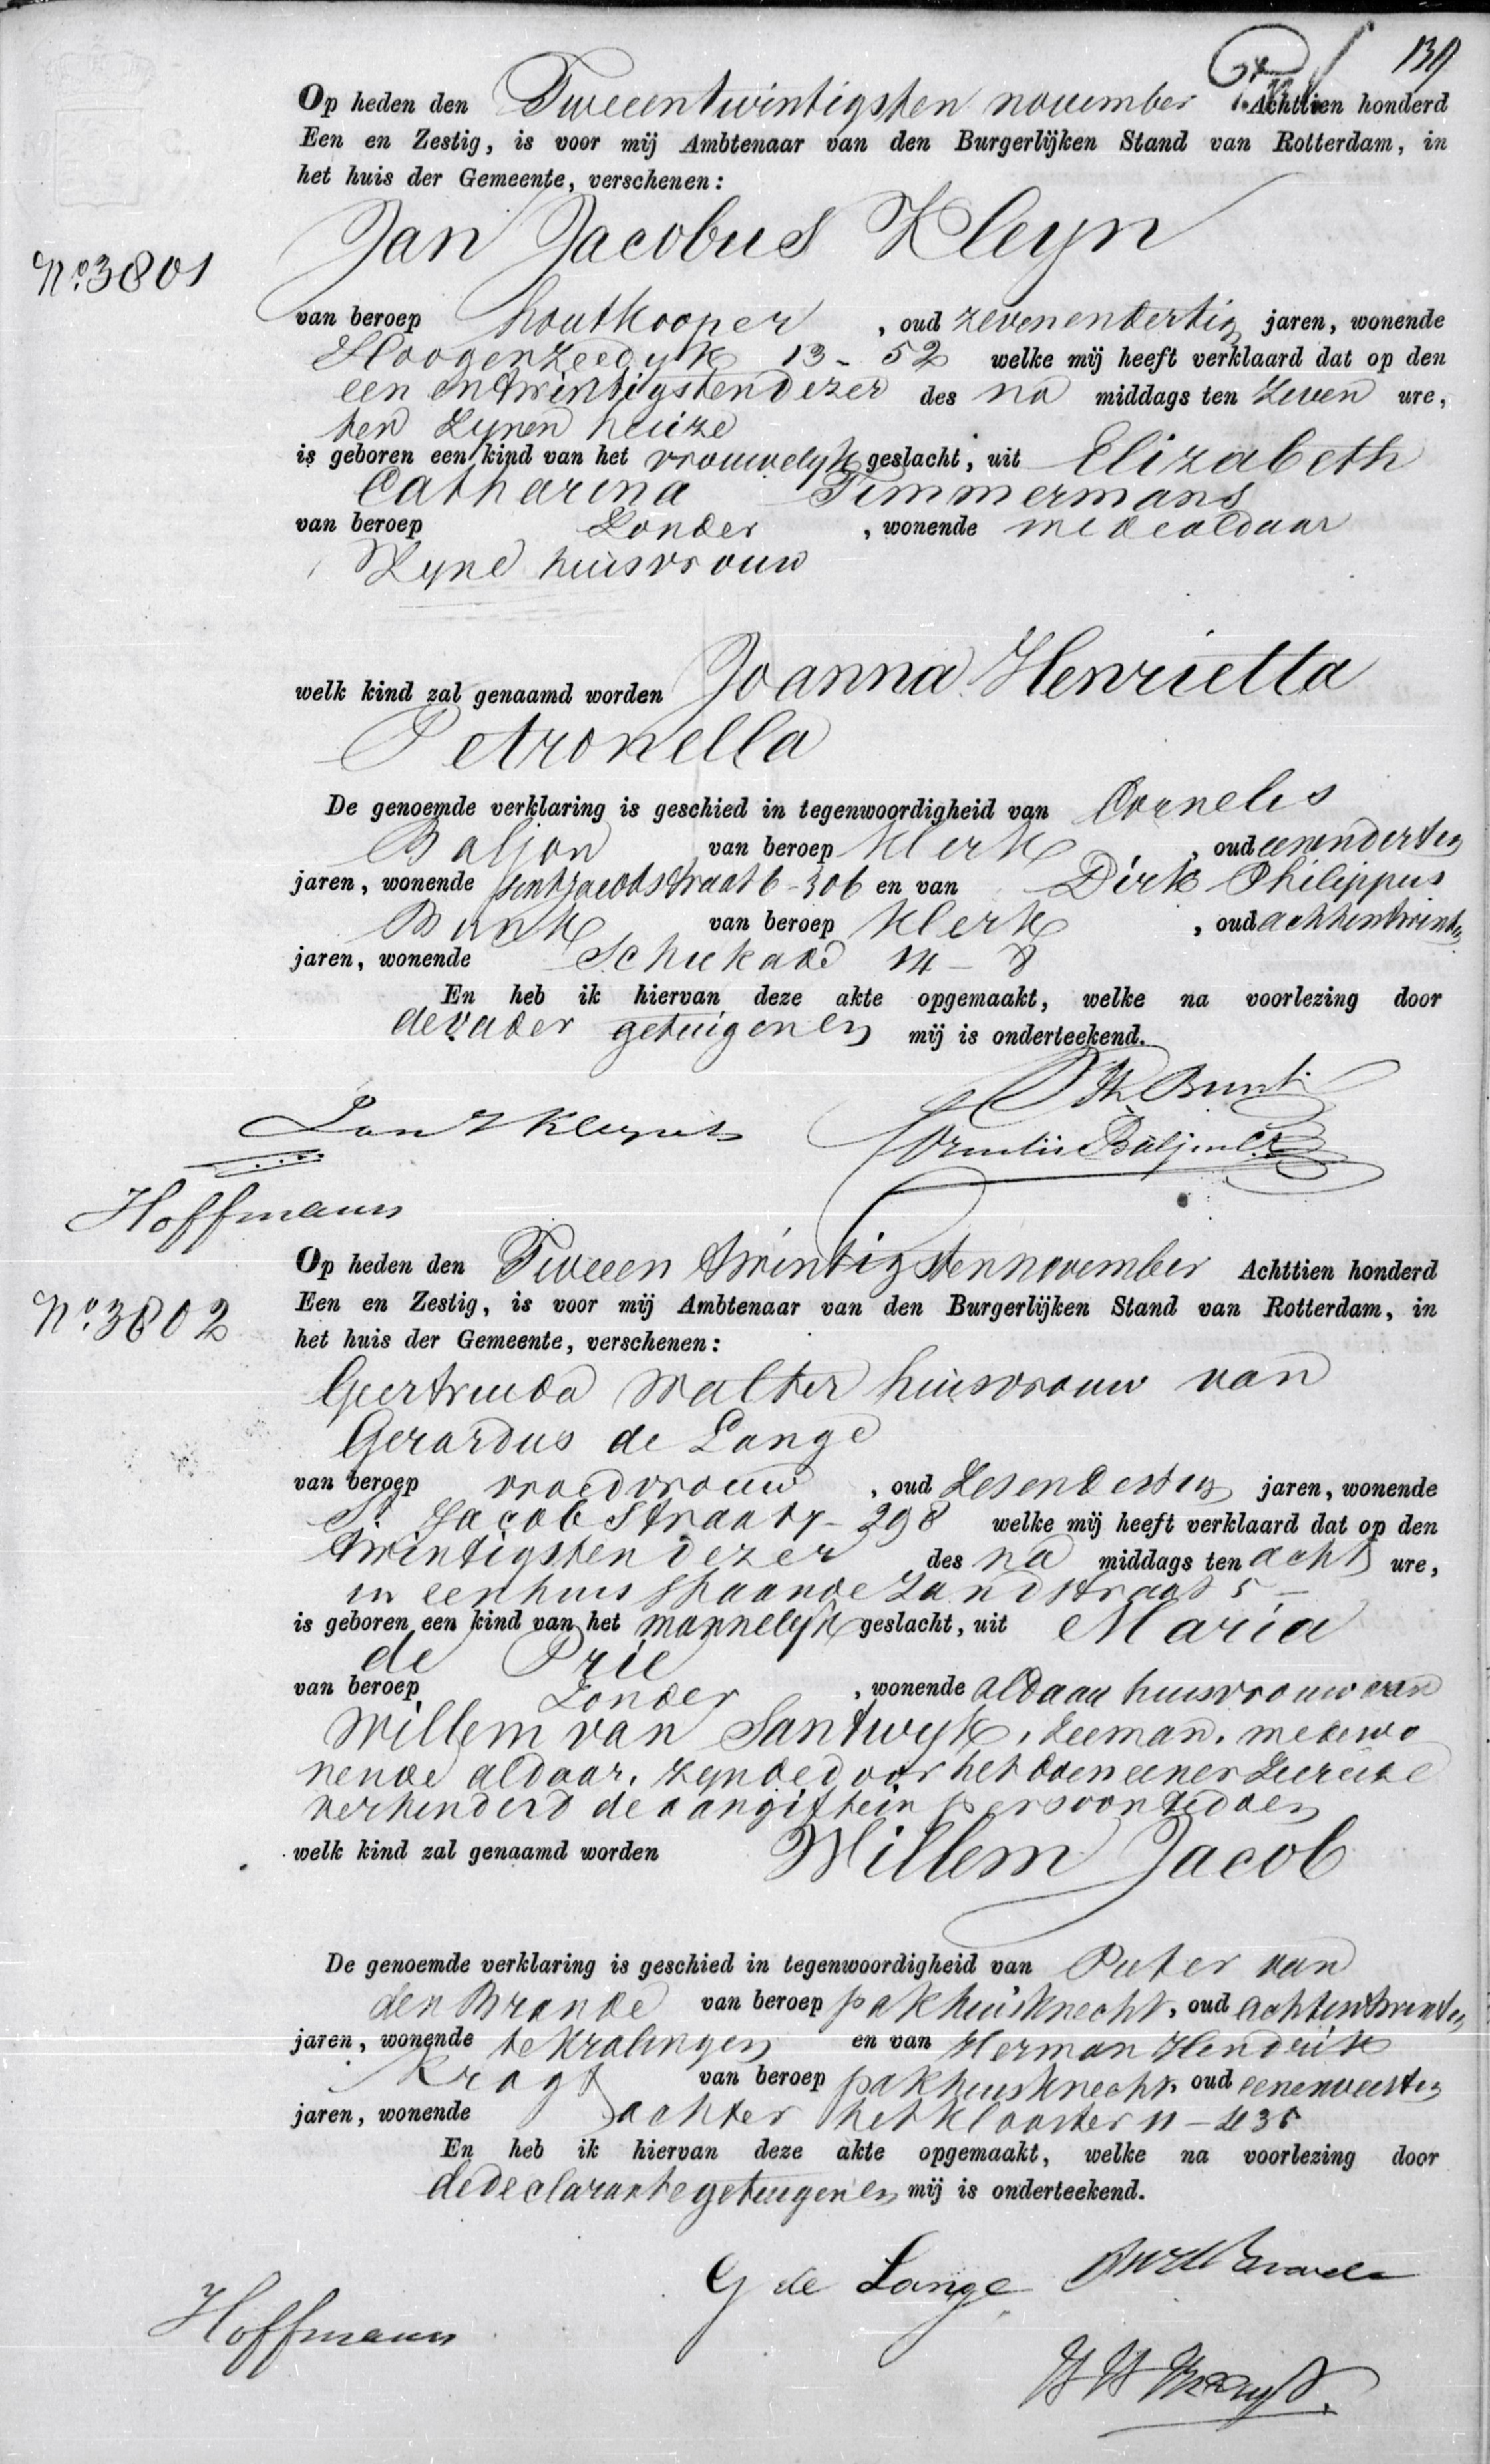 139
Op heden den Tweeentwintigsten november Achttien honderd
Een en Zestig, is voor mij Ambtenaar van den Burgerlijken Stand van Rotterdam, in
het huis der Gemeente, verschenen:
Jan Jacobus Kleyn
No. 3801
van beroep houtkooper, oud zevenendertig jaren, wonende
Hoogenzeedyk 13 - 52 welke mij heeft verklaard dat op den
een entwintigsten dezer des na middags ten zeven ure,
ten zynen huize
is geboren een kind van het vrouwelyk geslacht, uit Elizabeth
Catharina Timmermans
van beroep Zonder, wonende mede aldaar
Zyne huisvrouw
welk kind zal genaamd worden Joanna Henrietta
Petronella
De genoemde verklaring is geschied in tegenwoordigheid van Cornelis
Baljon van beroep klerk, oud eenendertig
jaren, wonende sintjacobstraat 6 - 306 en van Dirk Philippus
Bunk van beroep klerk, oud achtentwintig
jaren, wonende Schiekade 14 - 8
En heb ik hiervan deze akte opgemaakt, welke na voorlezing door
de vader getuigen en mij is onderteekend.
Bunk
Jan J Kleyn
Cornelis Baljon
Hoffmann
Op heden den Tweeen twintigsten november Achttien honderd
No. 3802
Een en Zestig, is voor mij Ambtenaar van den Burgerlijken Stand van Rotterdam, in
het huis der Gemeente, verschenen:
Geertruida Walter huisvrouw van
Gerardus de Lange
van beroep vroedvrouw, oud Zesendertig jaren, wonende
St. Jacobstraat 7 - 298 welke mij heeft verklaard dat op den
twintigsten dezer des na middags ten acht ure,
in een huis staande Zandstraat 5 -
is geboren een kind van het mannelyk geslacht, uit Maria
de Prie
van beroep Zonder, wonende aldaar huisvrouw van
Willem van Santwyk, zeeman, medewo
nende aldaar, zynde door het doen eener Zeereize
verhinderd de aangifte in persoon te doen
welk kind zal genaamd worden Willem Jacob
De genoemde verklaring is geschied in tegenwoordigheid van Pieter van
den Brande van beroep pakhuisknecht, oud achtentwintig
jaren, wonende te Kralingen en van Herman Hendrik
Kragt van beroep pakhuisknecht, oud eenenveertig
jaren, wonende achter het klooster 11 - 435
En heb ik hiervan deze akte opgemaakt, welke na voorlezing door
de declarante getuigen en mij is onderteekend.
G de Lange
Hoffmann